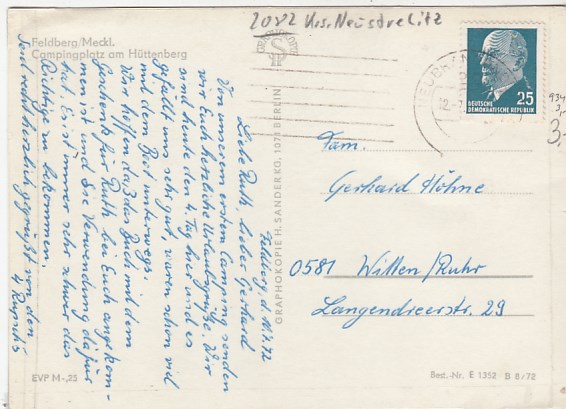 2082 Krs. Neustrelitz
Feldberg/Meckl.
Campingplatz am Hüttenberg
Feldberg, d. 10.7.72
Liebe Ruth, lieber Gerhard
Von unserem ersten Camping senden
wir Euch herzliche Urlaubsgrüße. Wir
sind heute den 4. Tag hier und es
gefällt uns sehr gut, waren schon viel
mit dem Boot unterwegs.
Wir hoffen, daß das Buch mit dem
Geschenk für Ruth bei Euch angekom-
men ist und die Verwendung dafür
hat. Es ist immer sehr schwer das
Richtige zu bekommen.
Seid recht herzlich gegrüßt von den
4
EVP M -,25
GRAPHOKOPIE H. SANDER KG, 1071 BERLIN
DEUTSCHE
DEMOKRATISCHE REPUBLIK
25
934
3,-
Fam.
Gerhard Höhne
0581 Witten/Ruhr
Langendreerstr. 29
Best.-Nr. E 1352 B 8/72